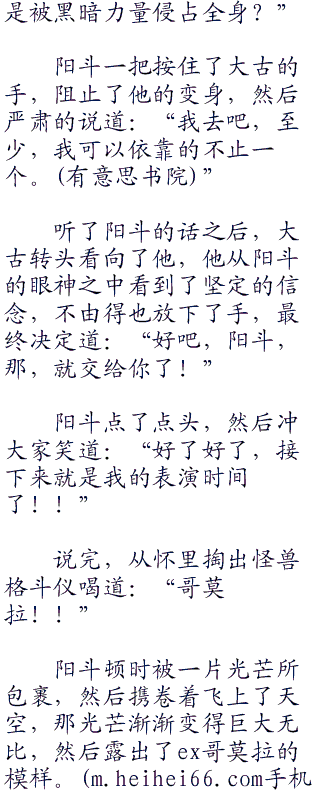 是被黑暗力量侵占全身？”
阳斗一把按住了大古的
手，阻止了他的变身，然后
严肃的说道：“我去吧，至
少，我可以依靠的不止一
个。(有意思书院)”
听了阳斗的话之后，大
古转头看向了他，他从阳斗
的眼神之中看到了坚定的信
念，不由得也放下了手，最
终决定道：“好吧，阳斗，
那，就交给你了！”
阳斗点了点头，然后冲
大家笑道：“好了好了，接
下来就是我的表演时间
了！！”
说完，从怀里掏出怪兽
格斗仪喝道：“哥莫
拉！！”
阳斗顿时被一片光芒所
包裹，然后携卷着飞上了天
空，那光芒渐渐变得巨大无
比，然后露出了ex哥莫拉的
模样。(m.heihei66.com手机